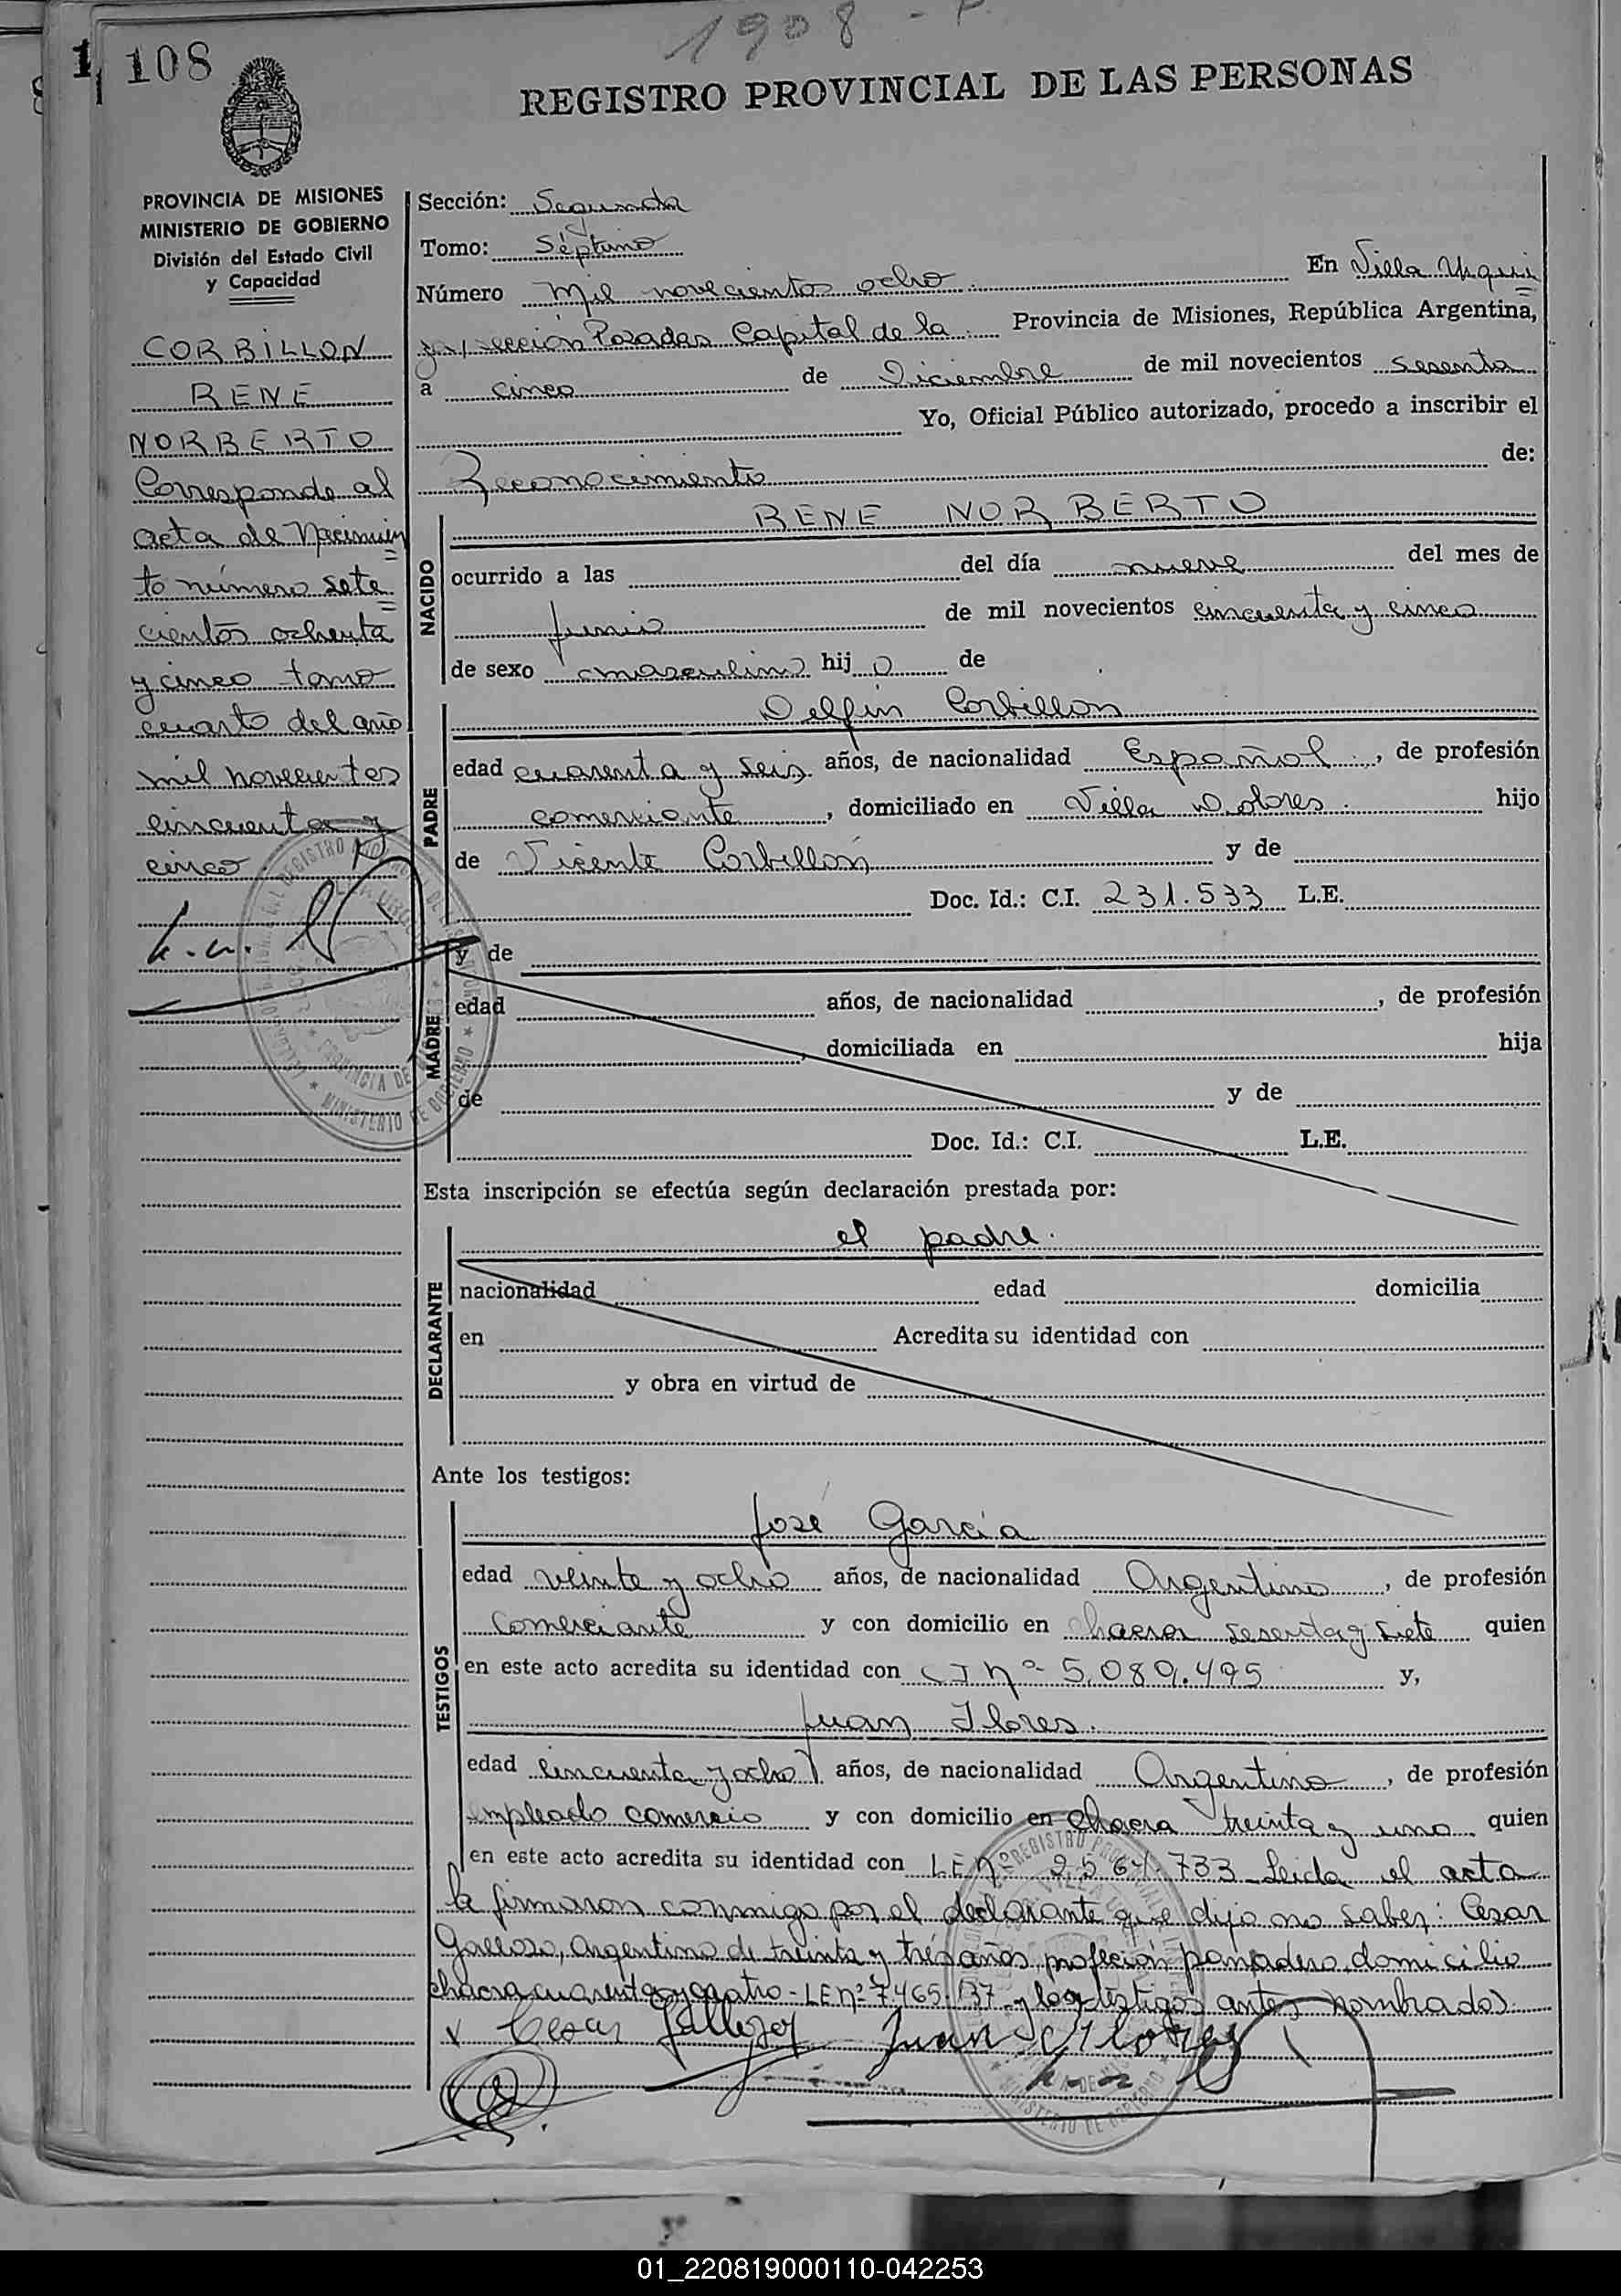 1908 - P.
1 108
REGISTRO PROVINCIAL DE LAS PERSONAS
PROVINCIA DE MISIONES
MINISTERIO DE GOBIERNO
División del Estado Civil
y Capacidad
CORBILLON
RENE
NORBERTO
Corresponde al
acta de Nacimien
to número sete
cientos ochenta
y cinco tomo
cuarto del año
mil novecientos
cincuenta y
cinco
Sección: Segunda
Tomo: Séptimo
Número mil novecientos ocho. En Villa Urqui
za, sección Posadas Capital de la Provincia de Misiones, República Argentina,
a cinco de Diciembre de mil novecientos sesenta
Yo, Oficial Público autorizado, procedo a inscribir el
Reconocimiento de:
NACIDO
RENE NORBERTO
ocurrido a las del día nueve del mes de
junio de mil novecientos cincuenta y cinco
de sexo masculino hijo de
PADRE
Delfin Corbillon
edad cuarenta y seis años, de nacionalidad Español, de profesión
comerciante, domiciliado en Villa Dolores. hijo
de Vicente Corbillon y de
Doc. Id.: C.I. 231.533 L.E.
MADRE
y de
edad años, de nacionalidad , de profesión
, domiciliada en hija
de y de
Doc. Id.: C.I. L.E.
Esta inscripción se efectúa según declaración prestada por:
DECLARANTE
el padre.
nacionalidad edad domicilia
en Acredita su identidad con
y obra en virtud de
Ante los testigos:
TESTIGOS
José García
edad veinte y ocho años, de nacionalidad Argentino, de profesión
Comerciante y con domicilio en chacra sesenta y siete quien
en este acto acredita su identidad con CI nº 5.089.495 y,
Juan Flores.
edad cincuenta y ocho años, de nacionalidad Argentino, de profesión
empleado comercio y con domicilio en chacra treinta y uno quien
en este acto acredita su identidad con LE nº 2564.733 Leida el acta
la firmaron conmigo por el declarante que dijo no saber: Cesar
Gallozo, Argentino de treinta y tres años, profeción panadero, domicilio
chacra cuarenta y cuatro - LE nº 7.465.137 y los testigos antes nombrados.
Cesar Juan Flores
01_220819000110-042253